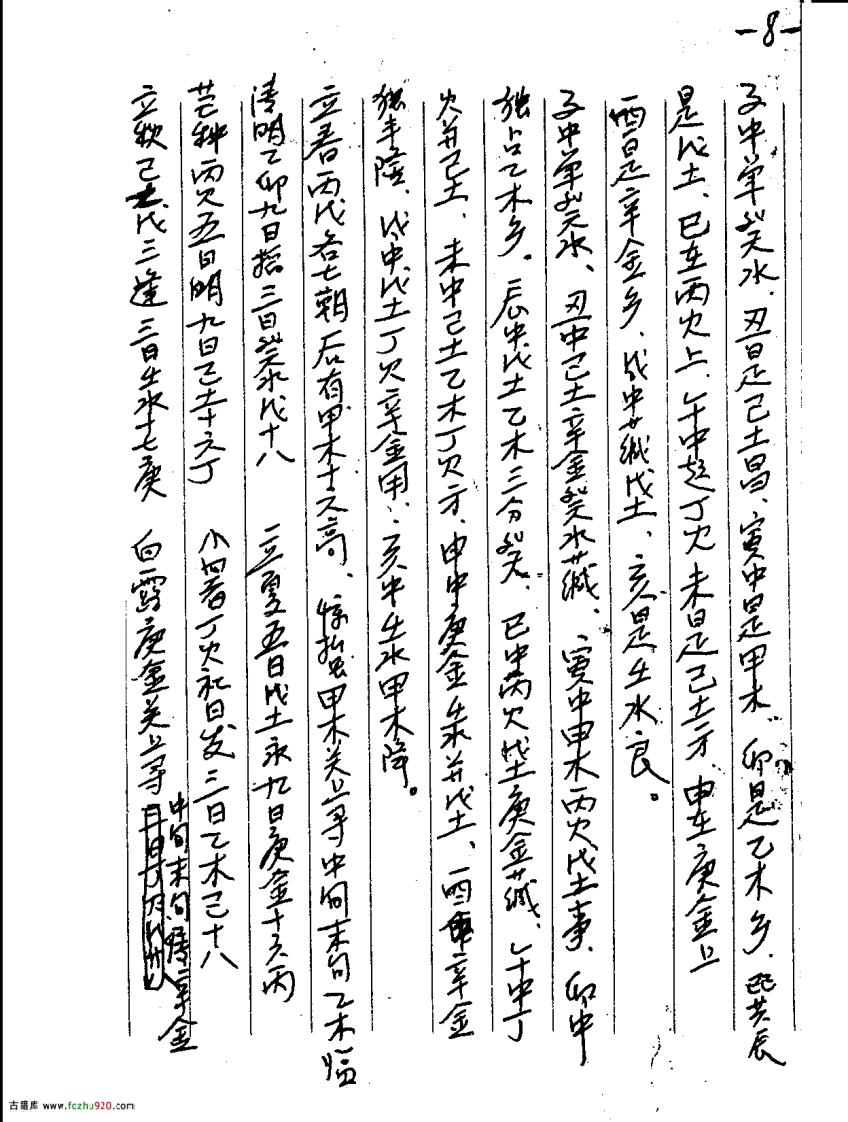 -8-
子中单癸水、丑是己土昌、寅中是甲木。卯是乙木乡、配共辰
是戊土、巳在丙火上、午中起丁火未是己土方、申在庚金上
酉是辛金乡、戌中藏戊土、亥是壬水良。
子中单癸水、丑中己土辛金癸水藏、寅中甲木丙火戊土事、卯中
独占乙木乡。辰中戊土乙木三分癸、巳中丙火戊土庚金藏、午中丁
火并己土、未中己土乙木丁火方、申中庚金壬水并戊土、酉中辛金
独丰隆、戌中戊土丁火辛金用、亥中壬水甲木降。
立春丙戊各七朝 后有甲木十六高、惊蛰甲木关上寻中旬末旬乙木临
清明乙卯九日搭三日癸水戊十八 立夏五日戊土永九日庚金十六丙
芒种丙火五日明九日己土十六丁 小署丁火初日发三日乙木己十八
立秋己土戊三逢三日壬水十七庚 白露庚金关上寻
中旬末旬 辛金
古籍库 www.fczhu920.com